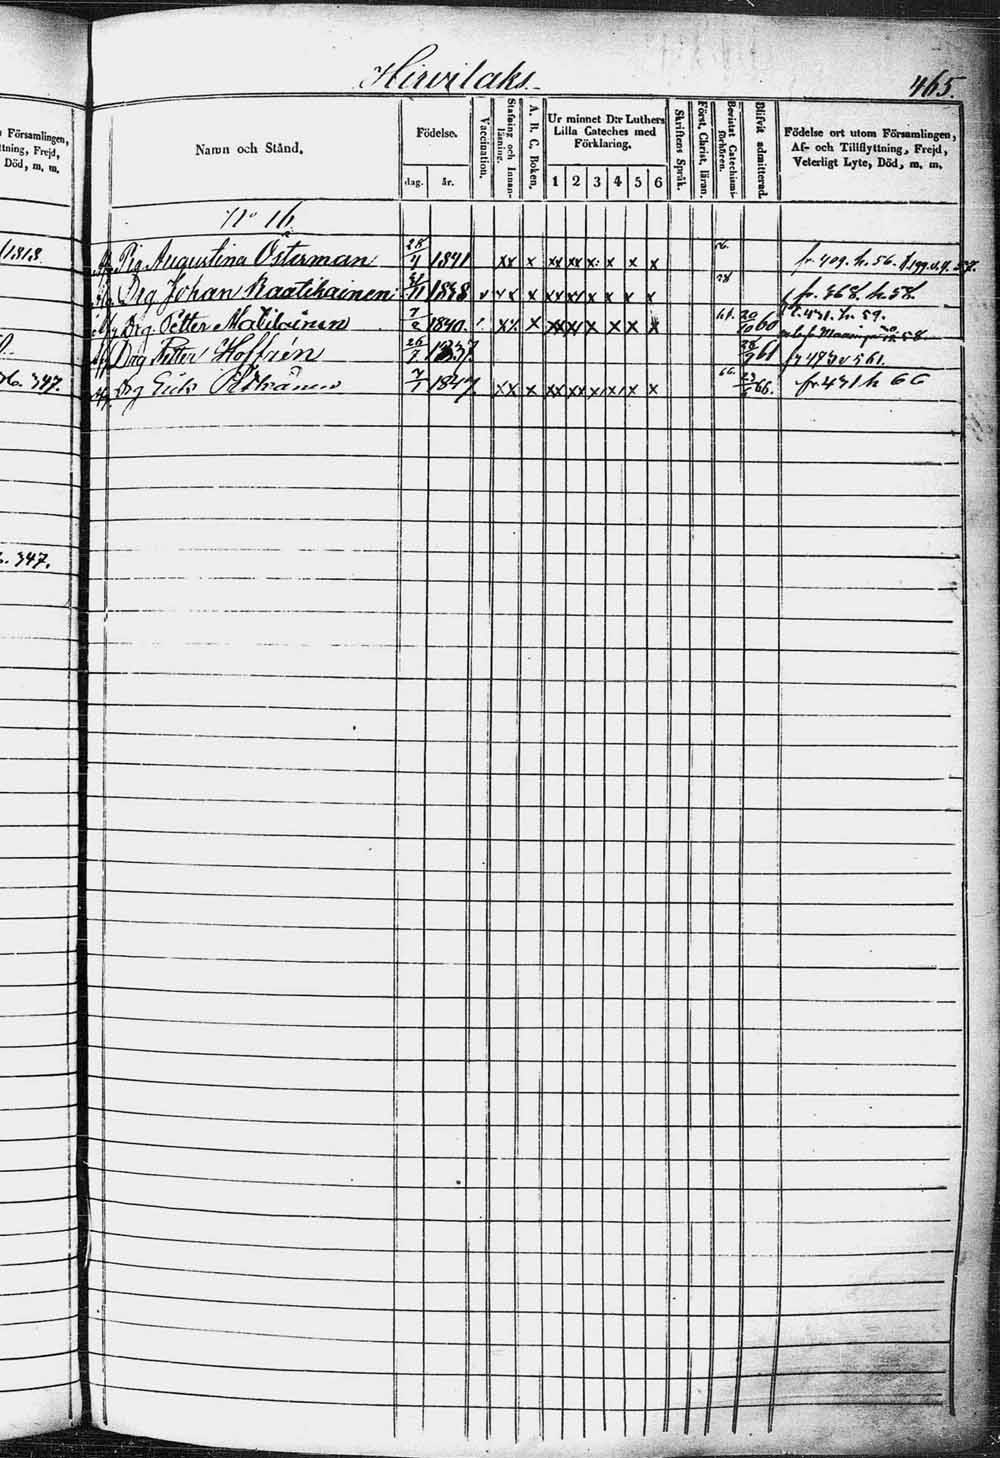 Hirvilaks.
465.
Församlingen,
ttning, Frejd,
Död, m. m.
Namn och Stånd.
Födelse.
dag. år.
Vaccination.
Stafning och Innan-
läsning.
A. B. C. Boken.
Ur minnet D:r Luthers
Lilla Cateches med
Förklaring.
1 2 3 4 5 6
Skriftens Språk.
Först. Christ. läran.
Bevistat Catechismi-
förhören.
Blifvit admitterad.
Födelse ort utom Församlingen,
Af- och Tillflyttning, Frejd,
Veterligt Lyte, Död, m. m.
No 16
1818.
Pig. Augustina Österman 28/4 1841 xx x xx xx x x x x fr 409. h. 56.
Drg Johan Raatikainen 1838 v x x x xx xx x x x x 58 fr. 368. h. 58.
Drg. Petter Matilainen 7/2 1840. x x x xx xx x x x x 61. 20/10 60 t. 431. h. 59.
Drg Petter Hoffrén 1837. 28/9 61 fr 493 v 561.
347.
Drg Erik 7/1 1847. xx x xx xx x x x x 66. 66. fr 431 h 66
347.